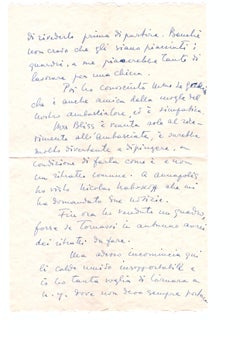 di rivederlo prima di partire. Benché
non creda che gli siano piaciuti i
quadri, a me piacerebbe tanto di
lavorare per una chiesa.
Poi ho conosciuto
che è anche amica della moglie del
nostro ambasciatore, ed è simpatica.
Mrs Bliss è venuta solo al rice-
vimento all'Ambasciata, e sarebbe
molto divertente a dipingere, a
condizione di farla come è e non
un ritratto comune. A Annapolis
ho visto Nicolas Nabokoff che mi
ha domandato due notizie.
Fin ora ho venduto un quadro,
forse se tornassi in autunno avrei
dei ritratti da fare.
Ma adesso incomincia qui
il caldo umido insopportabile e
io ho tanta voglia di tornare a
N.Y. dove non deve sempre